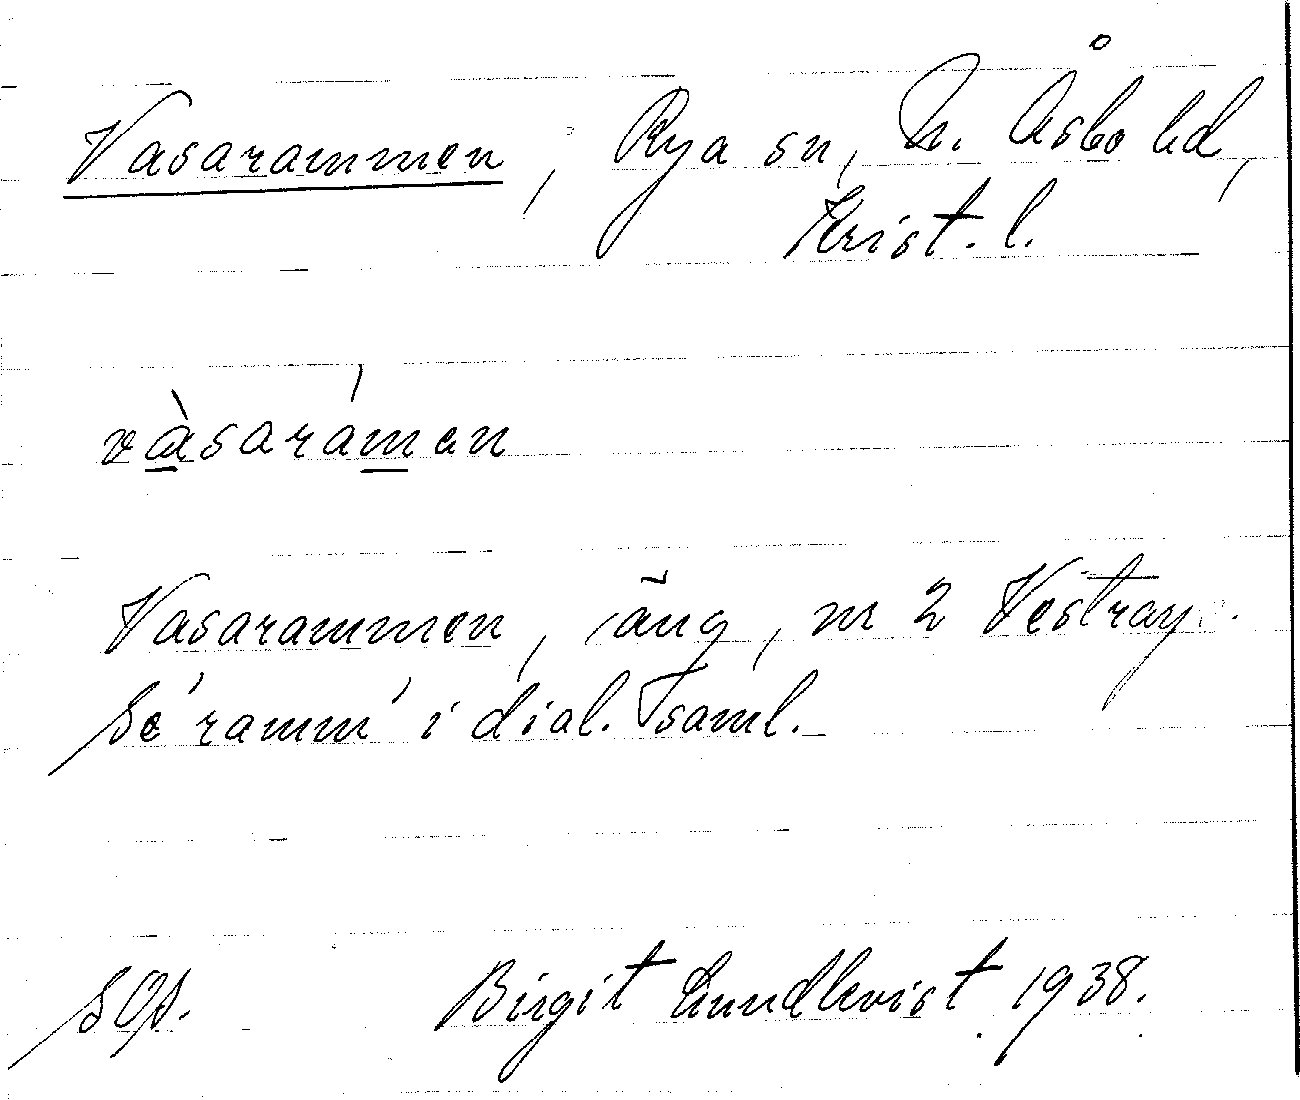 Vasarammen, Rya sn, N. Åsbo hd,
Krist. l.
vàsaráman
Vasarammen, äng, nr 2 Västra
Se 'ramm' i dial. saml.
Birgit Lundkvist 1938.